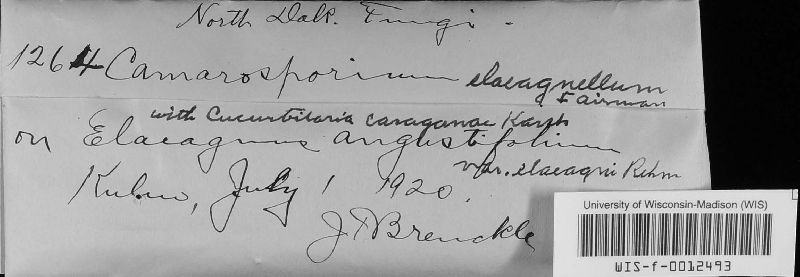 North Dak. Fungi -
1264 Camarosporium elaeagnellum
Fairman
with Cucurbitaria caraganae Karst
on Elaeagnus angustifolium
var. elaeagni Rehm
Kulm, July 1 1920.
J F Brenckle
University of Wisconsin-Madison (WIS)
WIS-f-0012493